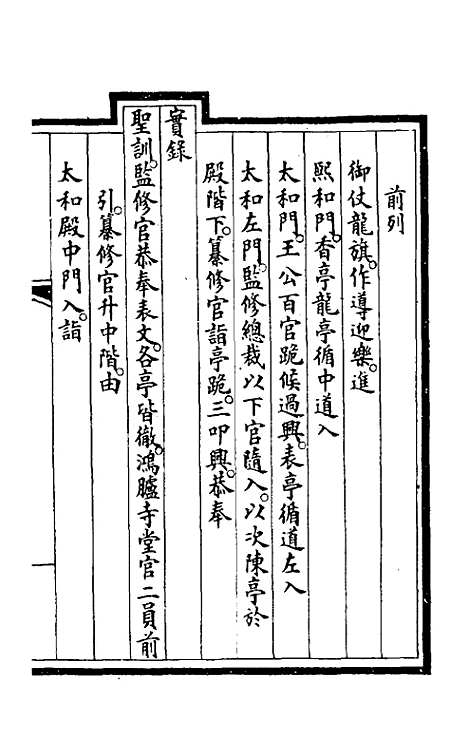 前列
御仗龍旗。作導迎樂。進
熙和門。香亭龍亭循中道入
太和門。王公百官跪候過興。表亭循道左入
太和左門。監修總裁以下官隨入。以次陳亭於
殿階下。纂修官詣亭跪。三叩興。恭奉
實錄
聖訓。監修官恭奉表文。各亭皆徹。鴻臚寺堂官二員前
引。纂修官升中階。由
太和殿中門入。詣